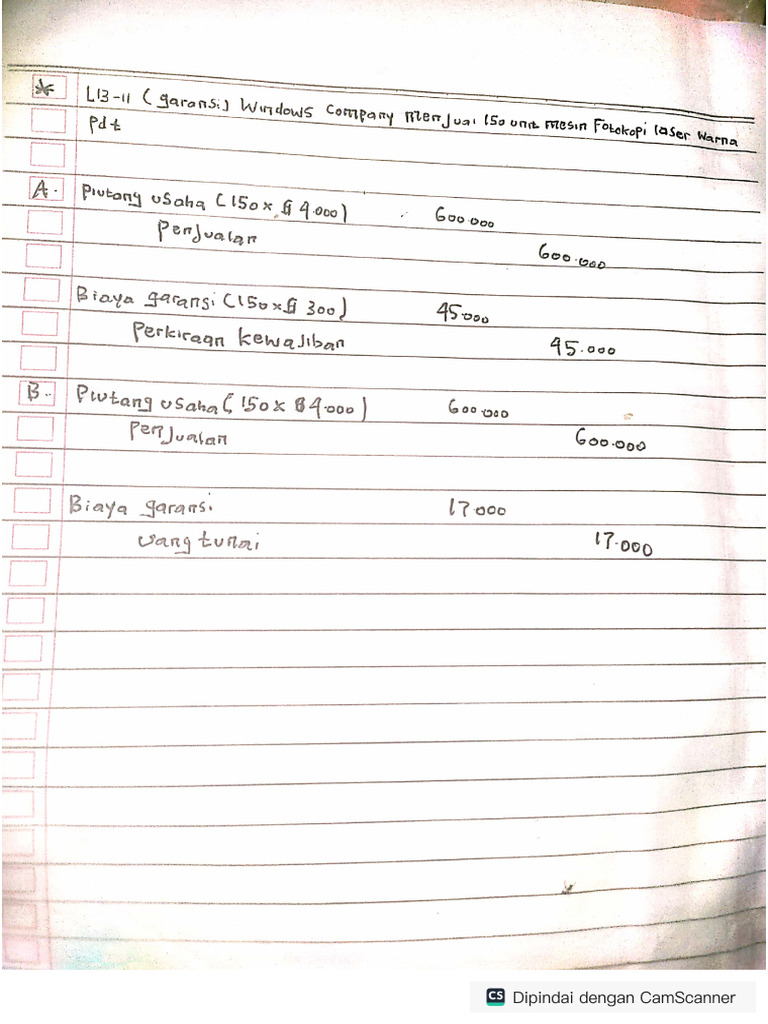 L13-11 (garansi) Windows Company menjual 150 unit mesin Fotokopi laser warna
Pdt
A. Piutang usaha (150 x $ 4.000) 600.000
Penjualan 600.000
Biaya garansi (150 x $ 300) 45.000
Perkiraan kewajiban 45.000
B. Piutang usaha (150 x $4.000) 600.000
Penjualan 600.000
Biaya garansi 17.000
uang tunai 17.000
CS Dipindai dengan CamScanner